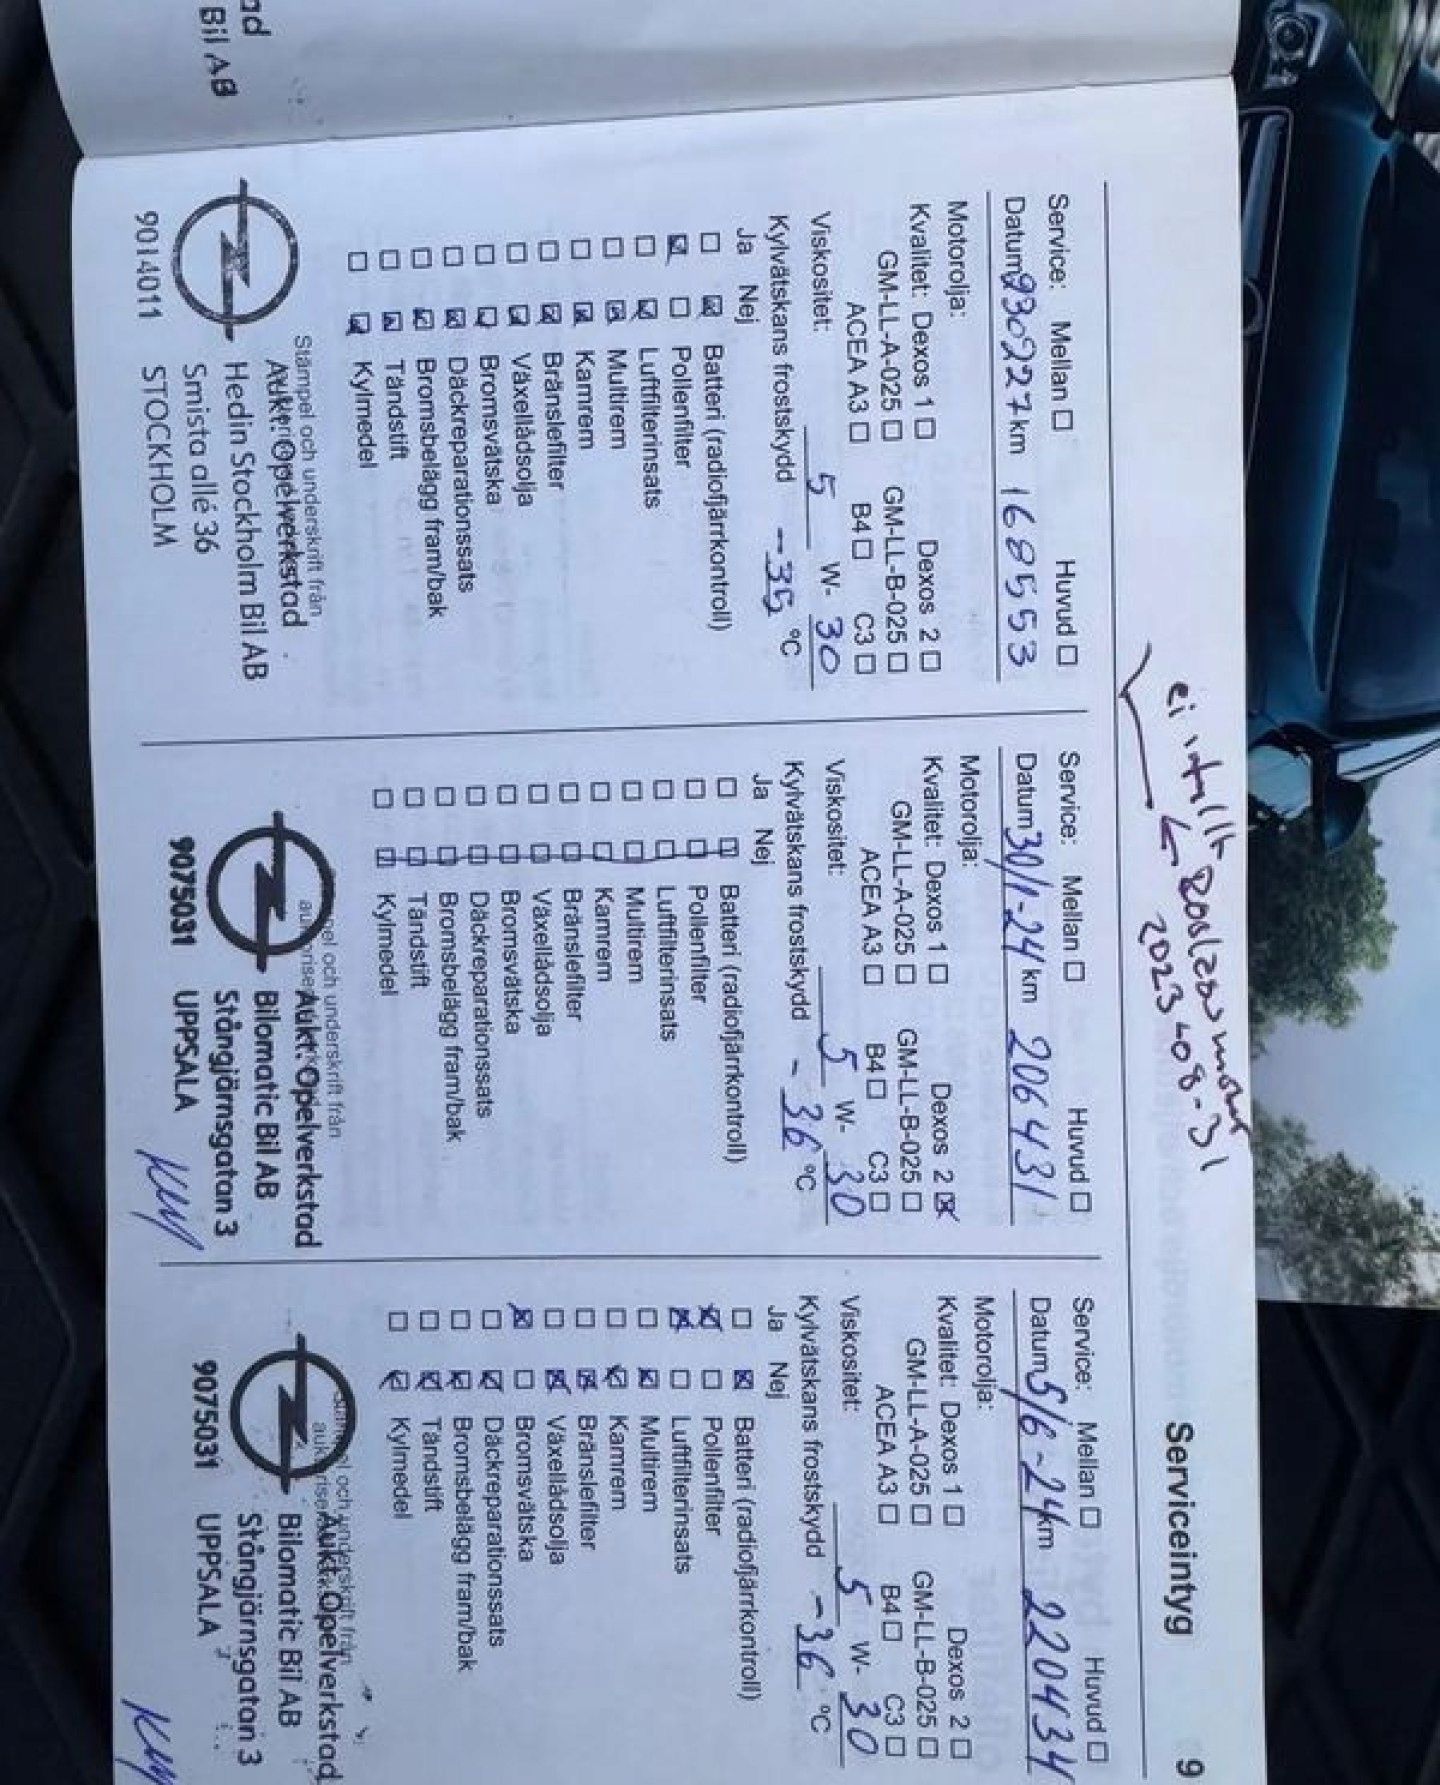 ad
Bil AB
Serviceintyg 9
2023-08-31
Service: Mellan ☐ Huvud ☐
Datum 230227 km 168553
Motorolja:
Kvalitet: Dexos 1 ☐ Dexos 2 ☐
GM-LL-A-025 ☐ GM-LL-B-025 ☐
ACEA A3 ☐ B4 ☐ C3 ☐
Viskositet: 5 W- 30
Kylvätskans frostskydd -35 °C
Ja Nej
☐ ☒ Batteri (radiofjärrkontroll)
☒ ☐ Pollenfilter
☐ ☒ Luftfilterinsats
☐ ☒ Multirem
☐ ☒ Kamrem
☐ ☒ Bränslefilter
☐ ☒ Växellådsolja
☐ ☒ Bromsvätska
☐ ☒ Däckreparationssats
☐ ☒ Bromsbelägg fram/bak
☐ ☒ Tändstift
☐ ☒ Kylmedel
Stämpel och underskrift från
Aukt. Opelverkstad
Hedin Stockholm Bil AB
Smista allé 36
9014011 STOCKHOLM
Service: Mellan ☐ Huvud ☐
Datum 30/1-24 km 206431
Motorolja:
Kvalitet: Dexos 1 ☐ Dexos 2 ☒
GM-LL-A-025 ☐ GM-LL-B-025 ☐
ACEA A3 ☐ B4 ☐ C3 ☐
Viskositet: 5 W- 30
Kylvätskans frostskydd -36 °C
Ja Nej
☐ ☐ Batteri (radiofjärrkontroll)
☐ ☐ Pollenfilter
☐ ☐ Luftfilterinsats
☐ ☐ Multirem
☐ ☐ Kamrem
☐ ☐ Bränslefilter
☐ ☐ Växellådsolja
☐ ☐ Bromsvätska
☐ ☐ Däckreparationssats
☐ ☐ Bromsbelägg fram/bak
☐ ☐ Tändstift
☐ ☐ Kylmedel
och underskrift från
Aukt. Opelverkstad
Bilomatic Bil AB
Stångjärnsgatan 3
9075031 UPPSALA
Service: Mellan ☐ Huvud ☐
Datum 5/6-24 km 220434
Motorolja:
Kvalitet: Dexos 1 ☐ Dexos 2 ☐
GM-LL-A-025 ☐ GM-LL-B-025 ☐
ACEA A3 ☐ B4 ☐ C3 ☐
Viskositet: 5 W- 30
Kylvätskans frostskydd -36 °C
Ja Nej
☐ ☒ Batteri (radiofjärrkontroll)
☒ ☐ Pollenfilter
☒ ☐ Luftfilterinsats
☐ ☒ Multirem
☐ ☒ Kamrem
☐ ☒ Bränslefilter
☐ ☒ Växellådsolja
☒ ☐ Bromsvätska
☐ ☒ Däckreparationssats
☐ ☒ Bromsbelägg fram/bak
☐ ☒ Tändstift
☐ ☒ Kylmedel
och underskrift från
Aukt. Opelverkstad
Bilomatic Bil AB
Stångjärnsgatan 3
9075031 UPPSALA